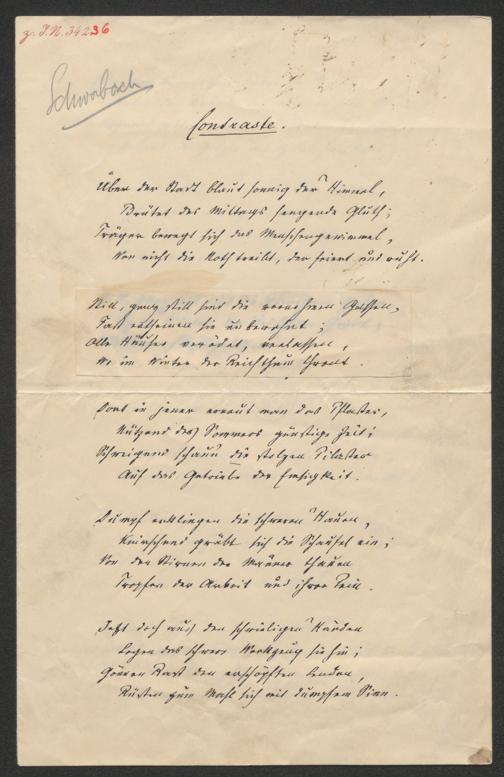 z. I.N. 34236
Schwarbach
Contraste.
Über der Stadt blaut sonnig der Himmel,
Brütet des Mittags sengende Gluth;
Träger bewegt sich das Menschengewimmel,
Wen nicht die Noth treibt, der feiert und ruht.
Still, ganz still sind die vornehmen Gassen,
Fast erscheinen sie unbewohnt;
Alle Häuser verödet, verlassen,
Wo im Winter der Reichthum thront.
Dort in jener erneut man das Pflaster,
Nützend des Sommers günstige Zeit;
Schweigend schaun die stolzen Pilaster
Auf das Getriebe der Emsigkeit.
Dumpf erklingen die schweren Hauen,
Knirschend gräbt sich die Schaufel ein;
Von den Stirnen der Männer thauen
Tropfen der Arbeit und ihrer Pein.
Jetzt doch aus den schwieligen Händen
Legen das schwere Werkzeug sie hin;
Gönnen Rast den erschöpften Lenden,
Rüsten zum Mahl sich mit dumpfem Sinn.